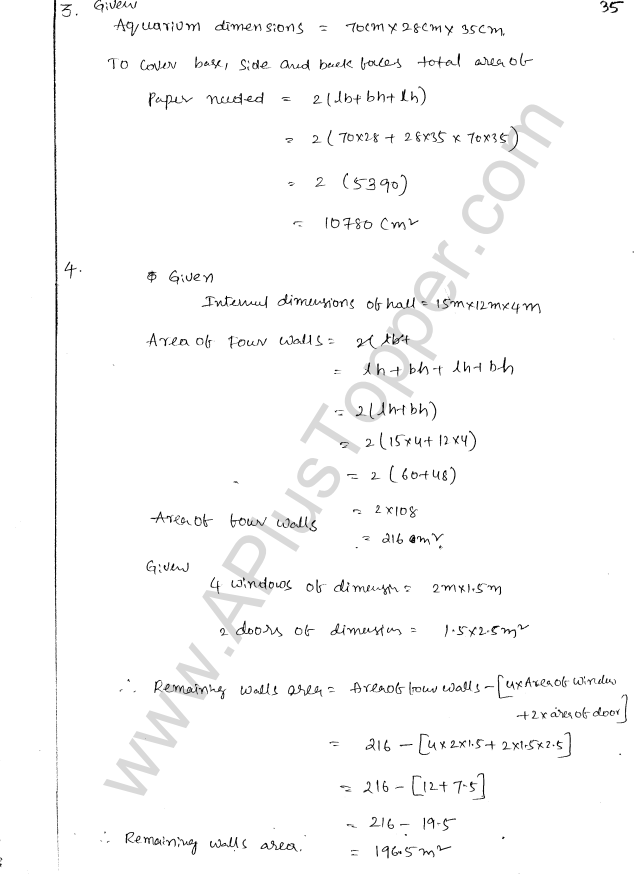 3. Given
35
Aquarium dimensions = 70cm x 28cm x 35cm.
To cover base, side and back faces total area of
Paper needed = 2(lb+bh+lh)
= 2(70x28 + 28x35 x 70x35)
= 2 (5390)
= 10780 cm²
4. Given
Internal dimensions of hall = 15m x 12m x 4m
Area of Four walls = 2(lb+
= lh + bh + lh + bh
= 2(lh+bh)
= 2(15x4+12x4)
= 2 (60+48)
= 2x108
Area of four walls
= 216 m².
Given
4 windows of dimension = 2m x 1.5m
2 doors of dimension = 1.5x2.5m²
∴ Remaining walls area = Area of four walls - [4xArea of window
+2x area of door]
= 216 - [4x2x1.5 + 2x1.5x2.5]
= 216 - [12+7.5]
= 216 - 19.5
∴ Remaining walls area.
= 196.5m²
www.APlusTopper.com